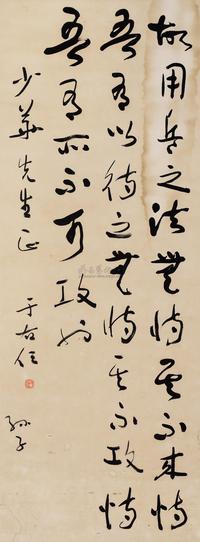 故用兵之法無恃其不來恃
吾有以待之無恃其不攻恃
吾有所不可攻也
少華先生正
于右任
孫子